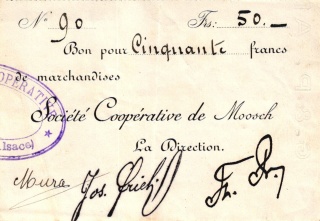 No 90 Frs: 50.—
Bon pour Cinquante francs
de marchandises
OPÉRATI
Société Coopérative de Moosch
lsace) *
La Direction.
Mura
Jos.